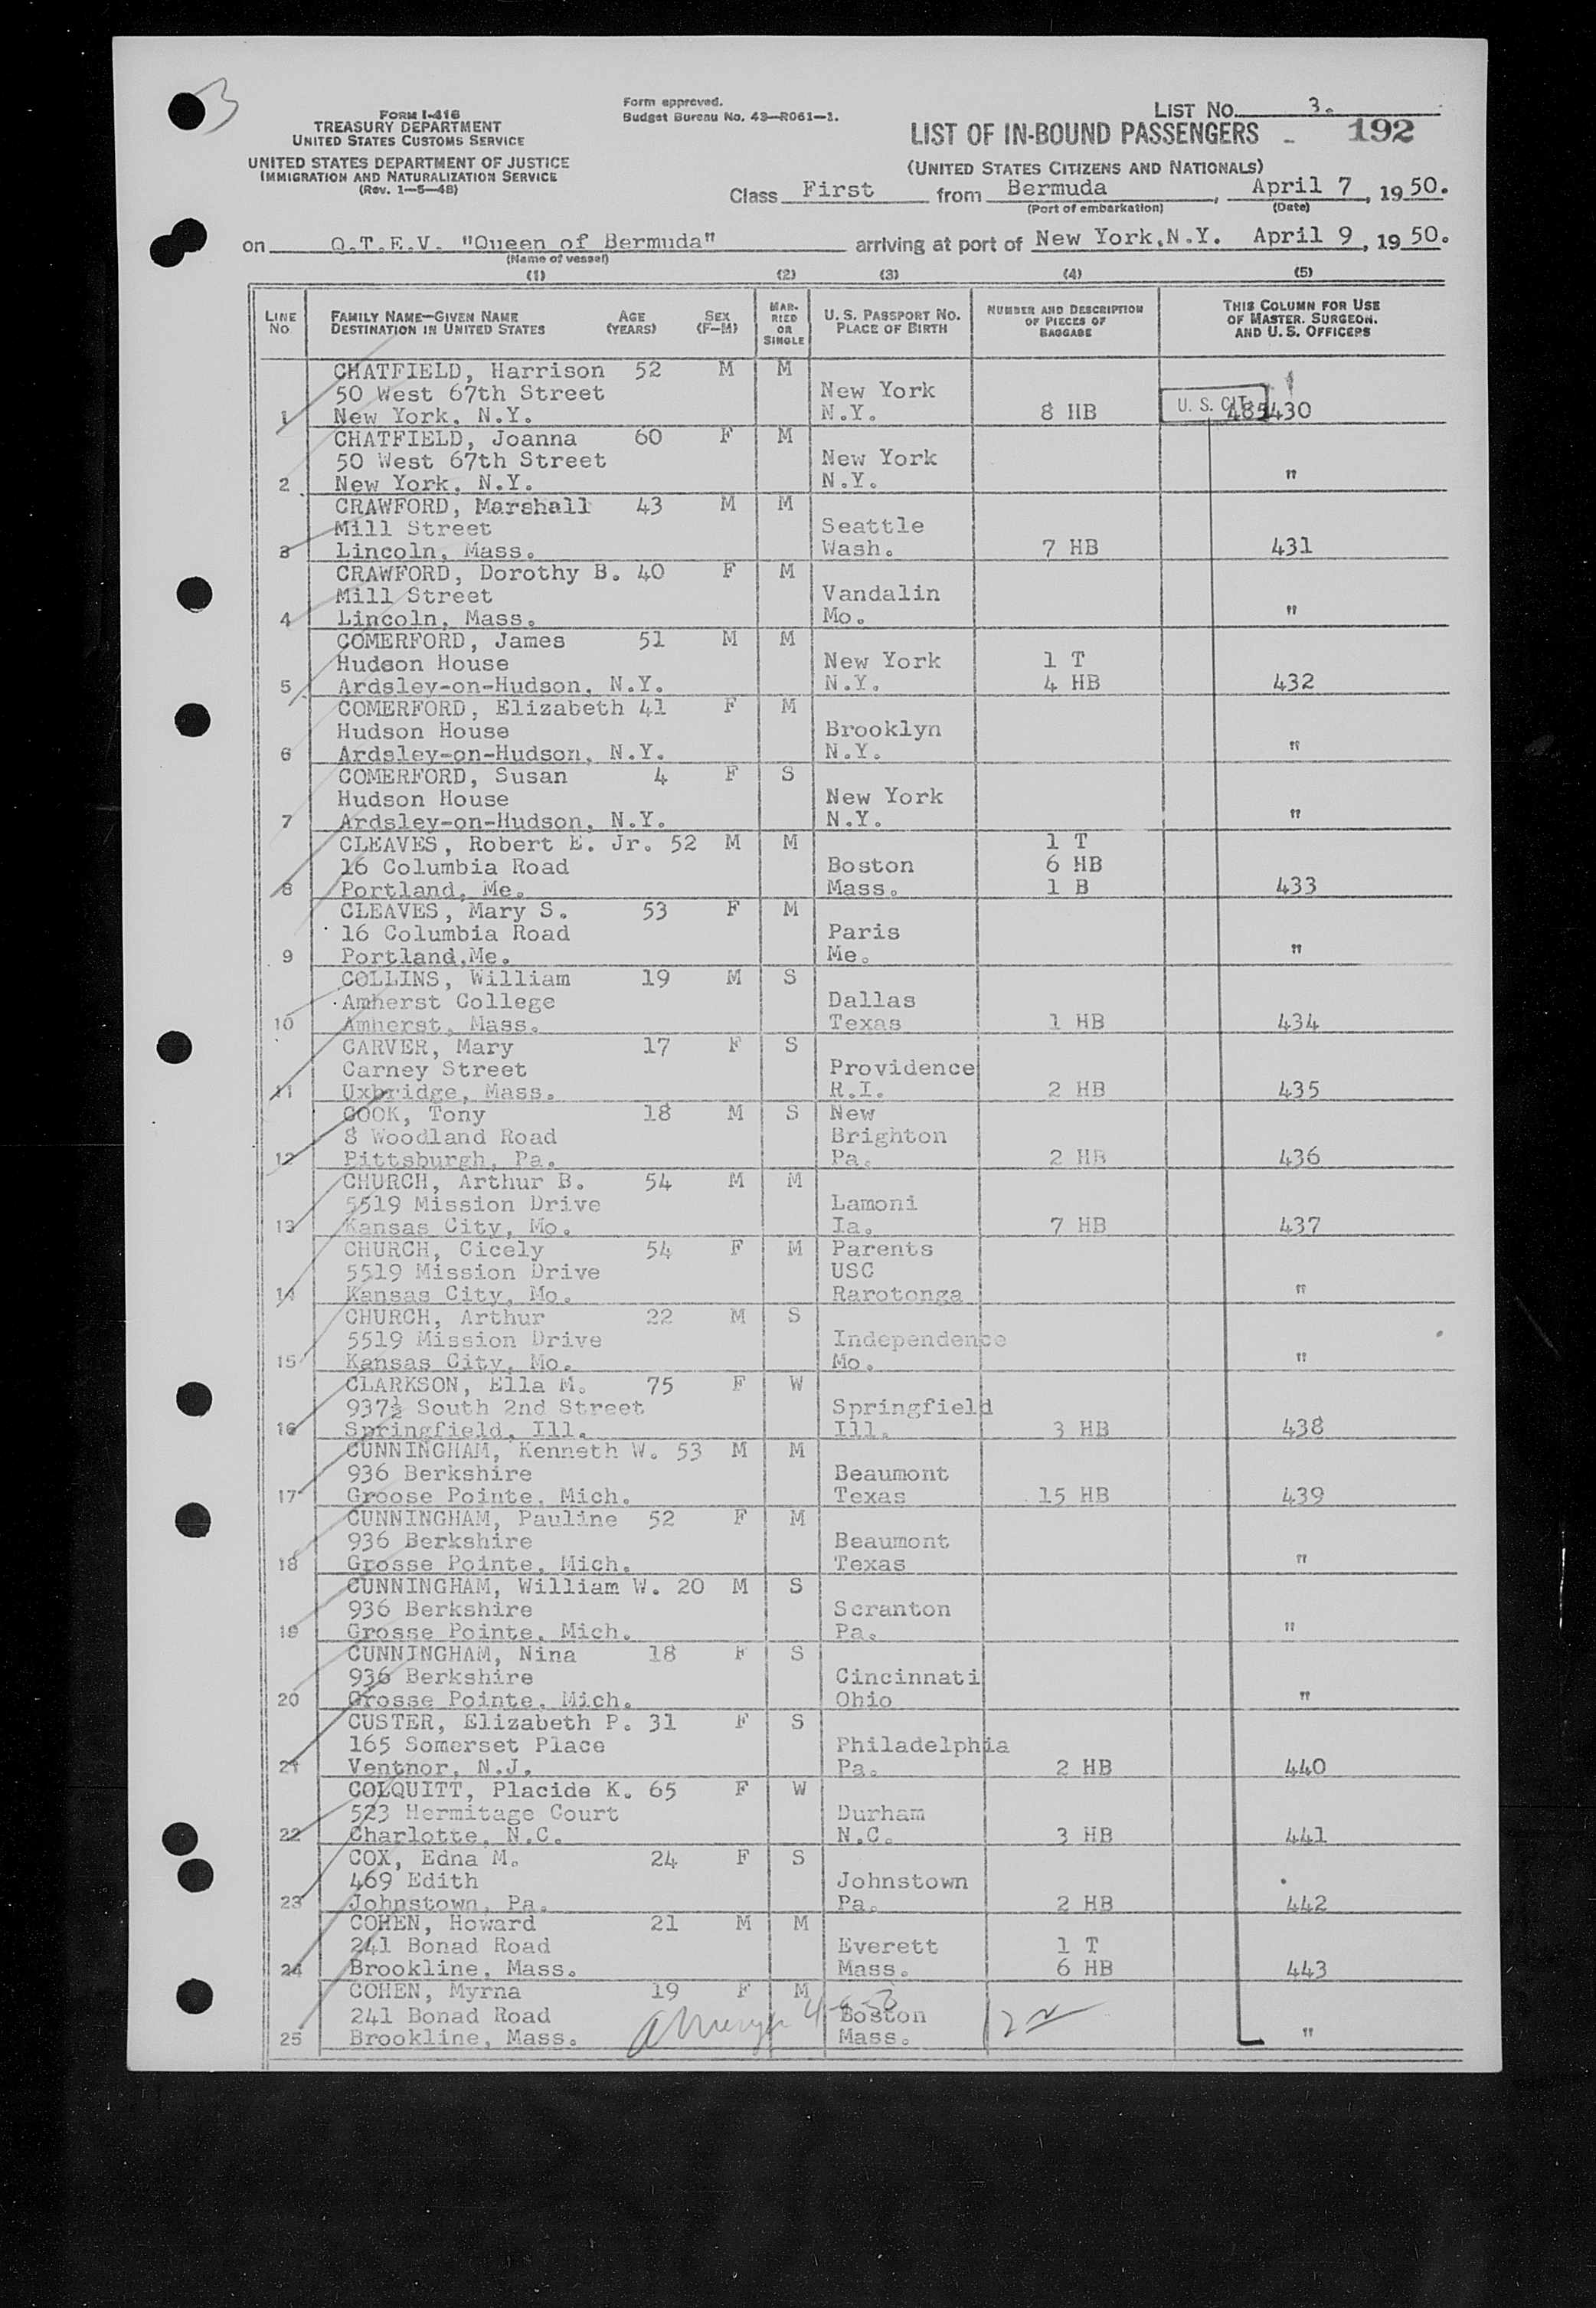 3
FORM I-416
TREASURY DEPARTMENT
UNITED STATES CUSTOMS SERVICE
UNITED STATES DEPARTMENT OF JUSTICE
IMMIGRATION AND NATURALIZATION SERVICE
(Rev. 1—5—48)
Form approved.
Budget Bureau No. 43—R061—1.
LIST NO. 3.
LIST OF IN-BOUND PASSENGERS - 192
(UNITED STATES CITIZENS AND NATIONALS)
Class First from Bermuda, April 7, 1950.
(Port of embarkation) (Date)
on Q.T.E.V. "Queen of Bermuda" arriving at port of New York,N.Y. April 9, 1950.
(Name of vessel)
(1) (2) (3) (4) (5)
LINE No. FAMILY NAME—GIVEN NAME DESTINATION IN UNITED STATES AGE (YEARS) SEX (F—M) MARRIED OR SINGLE U. S. PASSPORT NO. PLACE OF BIRTH NUMBER AND DESCRIPTION OF PIECES OF BAGGAGE THIS COLUMN FOR USE OF MASTER, SURGEON, AND U. S. OFFICERS
CHATFIELD, Harrison 52 M M
50 West 67th Street New York
1 New York, N.Y. N.Y. 8 HB U. S. CIT. 485430
CHATFIELD, Joanna 60 F M
50 West 67th Street New York
2 New York, N.Y. N.Y. "
CRAWFORD, Marshall 43 M M
Mill Street Seattle
3 Lincoln, Mass. Wash. 7 HB 431
CRAWFORD, Dorothy B. 40 F M
Mill Street Vandalin
4 Lincoln, Mass. Mo. "
COMERFORD, James 51 M M
Hudson House New York 1 T
5 Ardsley-on-Hudson, N.Y. N.Y. 4 HB 432
COMERFORD, Elizabeth 41 F M
Hudson House Brooklyn
6 Ardsley-on-Hudson, N.Y. N.Y. "
COMERFORD, Susan 4 F S
Hudson House New York
7 Ardsley-on-Hudson, N.Y. N.Y. "
CLEAVES, Robert E. Jr. 52 M M 1 T
16 Columbia Road Boston 6 HB
8 Portland, Me. Mass. 1 B 433
CLEAVES, Mary S. 53 F M
16 Columbia Road Paris
9 Portland,Me. Me. "
COLLINS, William 19 M S
Amherst College Dallas
10 Amherst, Mass. Texas 1 HB 434
CARVER, Mary 17 F S
Carney Street Providence
11 Uxbridge, Mass. R.I. 2 HB 435
COOK, Tony 18 M S New
8 Woodland Road Brighton
12 Pittsburgh, Pa. Pa. 2 HB 436
CHURCH, Arthur B. 54 M M
5519 Mission Drive Lamoni
13 Kansas City, Mo. Ia. 7 HB 437
CHURCH, Cicely 54 F M Parents
5519 Mission Drive USC
14 Kansas City, Mo. Rarotonga "
CHURCH, Arthur 22 M S
5519 Mission Drive Independence
15 Kansas City, Mo. Mo. "
CLARKSON, Ella M. 75 F W
937½ South 2nd Street Springfield
16 Springfield, Ill. Ill. 3 HB 438
CUNNINGHAM, Kenneth W. 53 M M
936 Berkshire Beaumont
17 Groose Pointe, Mich. Texas 15 HB 439
CUNNINGHAM, Pauline 52 F M
936 Berkshire Beaumont
18 Grosse Pointe, Mich. Texas "
CUNNINGHAM, William W. 20 M S
936 Berkshire Scranton
19 Grosse Pointe, Mich. Pa. "
CUNNINGHAM, Nina 18 F S
936 Berkshire Cincinnati
20 Grosse Pointe, Mich. Ohio "
CUSTER, Elizabeth P. 31 F S
165 Somerset Place Philadelphia
21 Ventnor, N.J. Pa. 2 HB 440
COLQUITT, Placide K. 65 F W
523 Hermitage Court Durham
22 Charlotte, N.C. N.C. 3 HB 441
COX, Edna M. 24 F S
469 Edith Johnstown
23 Johnstown, Pa. Pa. 2 HB 442
COHEN, Howard 21 M M
241 Bonad Road Everett 1 T
24 Brookline, Mass. Mass. 6 HB 443
COHEN, Myrna 19 F M
241 Bonad Road Boston
25 Brookline, Mass. Mass. "